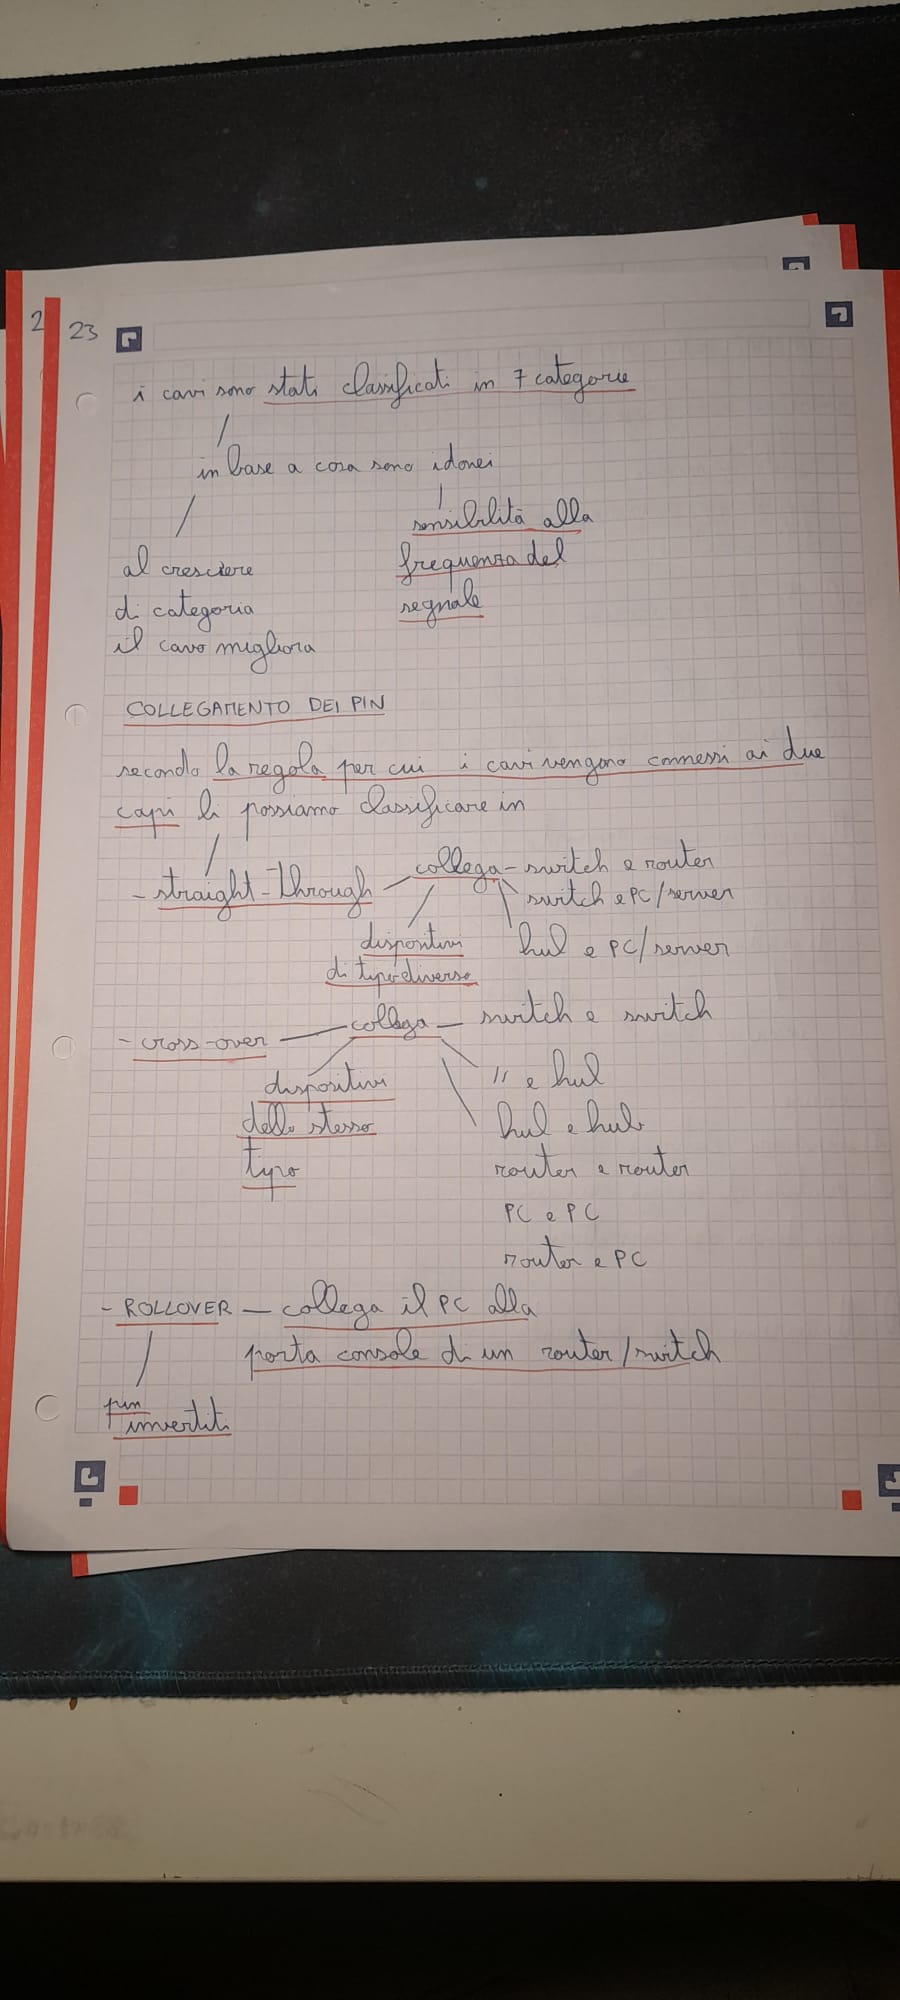 2
23
i cavi sono stati classificati in 7 categorie
in base a cosa sono idonei
sensibilità alla
frequenza del
segnale
al cresciere
di categoria
il cavo migliora
COLLEGAMENTO DEI PIN
secondo la regola per cui i cavi vengono connessi ai due
capi li possiamo classificare in
- straight-through - collega - switch e router
switch e PC/server
hub e PC/server
dispositivi
di tipo diverso
- cross-over - collega - switch e switch
" e hub
hub e hub
router e router
PC e PC
router e PC
dispositivi
dello stesso
tipo
- ROLLOVER - collega il PC alla
porta console di un router/switch
pin
invertiti